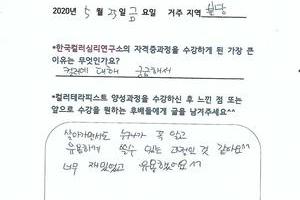 2020년 5 월 23일 금 요일 거주 지역 분당
*한국컬러심리연구소의 자격증과정을 수강하게 된 가장 큰
이유는 무엇인가요?
컬러에 대해 궁금해서
*컬러테라피스트 양성과정을 수강하신 후 느낀 점 또는
앞으로 수강을 원하는 후배들에게 글을 남겨주세요^^
살아가면서도 누구나 꼭 알고
유용하게 쓸수 있는 과정인 것 같아요~
너무 재밌었고 유용했어요^^